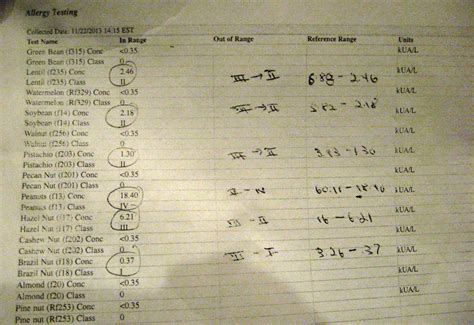 Allergy Testing
Collected Date: 11/22/2013 14:15 EST
Test Name In Range Out of Range Reference Range Units
Green Bean (f315) Conc <0.35 kUA/L
Green Bean (f315) Class 0
Lentil (f235) Conc 2.46 III → II 6.82 - 2.46 kUA/L
Lentil (f235) Class II
Watermelon (Rf329) Conc <0.35 kUA/L
Watermelon (Rf329) Class 0
Soybean (f14) Conc 2.18 III → II 2.18 kUA/L
Soybean (f14) Class II
Walnut (f256) Conc <0.35 kUA/L
Walnut (f256) Class 0
Pistachio (f203) Conc 1.30 → II 3.83 - 1.30 kUA/L
Pistachio (f203) Class II
Pecan Nut (f201) Conc <0.35 kUA/L
Pecan Nut (f201) Class 0
Peanuts (f13) Conc 18.40 kUA/L
Peanuts (f13) Class IV
Hazel Nut (f17) Conc 6.21 16 - 6.21 kUA/L
Hazel Nut (f17) Class III
Cashew Nut (f202) Conc <0.35 kUA/L
Cashew Nut (f202) Class 0 - I 3.26 - 37
Brazil Nut (f18) Conc 0.37 kUA/L
Brazil Nut (f18) Class I
Almond (f20) Conc <0.35 kUA/L
Almond (f20) Class 0
Pine nut (Rf253) Conc <0.35 kUA/L
Pine nut (Rf253) Class 0